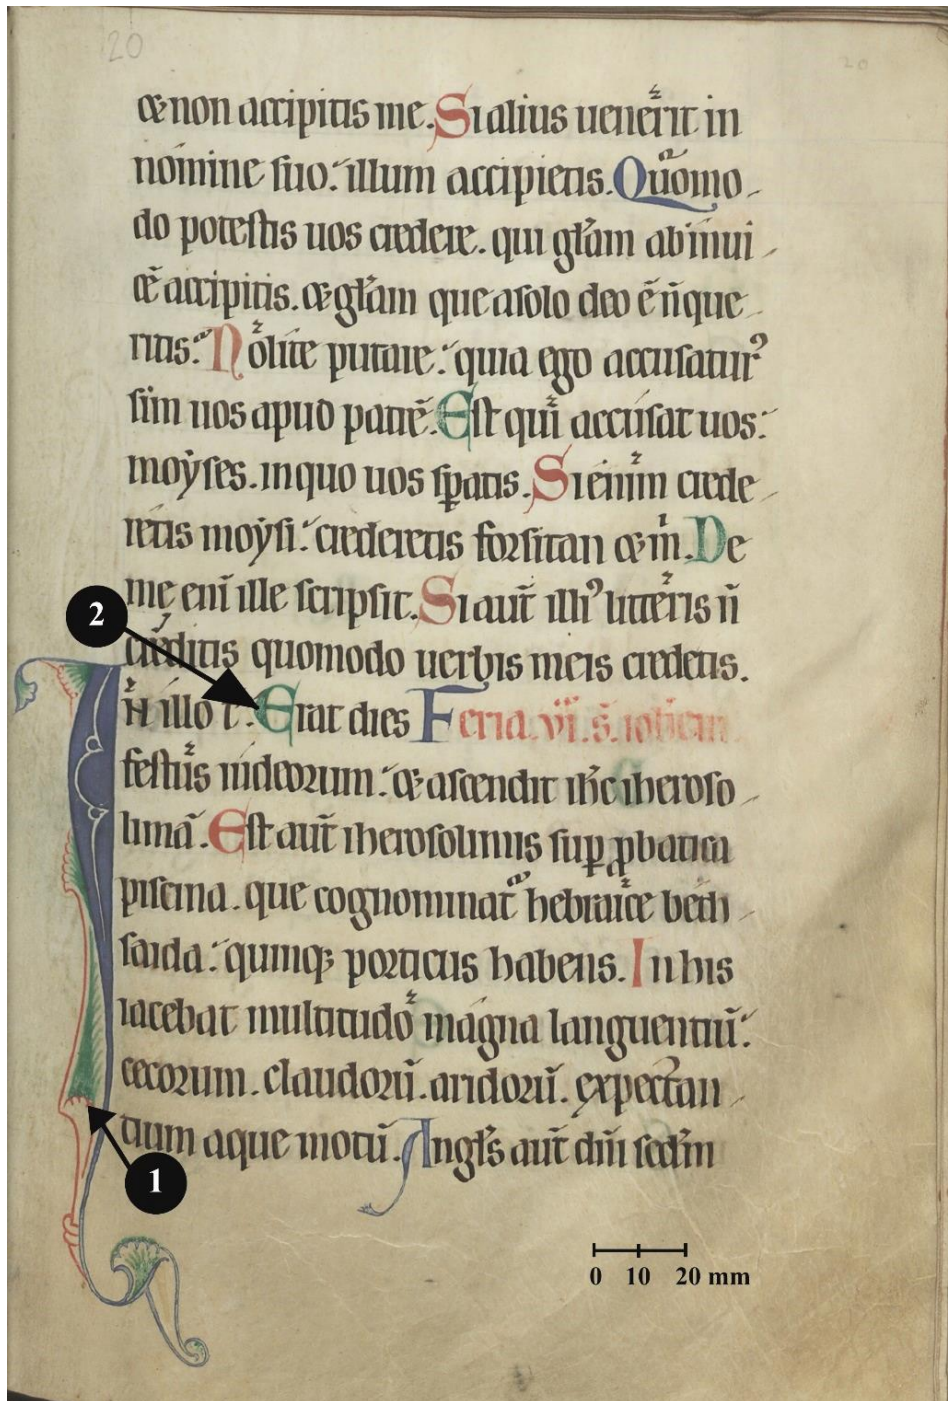 20
20
& non accipitis me. Si alius uenerit in
nomine suo: illum accipietis. Quomo-
do potestis uos credere. qui glam abinui-
cē accipitis. & glam que asolo deo ē n̄ que-
ritis: Nolite putare: quia ego accusaturꝰ
sim uos apud patrē. Est qui accusat uos:
moẏses. inquo uos sꝑatis. Si enim crede-
retis moẏsi: crederetis forsitan & m̄. De
me eni ̄ille scripsit. Si aut̄ illiꝰ litteris n̄
creditis quomodo uerbis meis credetis.
IN illo t̄. Erat dies Feria. vi. s. ioħem
festus iudeorum: & ascendit ihc iheroso-
limā. Est aut̄ iherosolimis suꝑ ꝓbatica
piscina. que cognominat̄ hebraice beth-
saida: quinqꝫ porticus habens. In his
iacebat multitudo magna languentiū:
cecorum. claudorū. aridorū. expectan-
tium aque motū. Angl̄s aut̄ dn̄i sc̄dm
2
1
0 10 20 mm